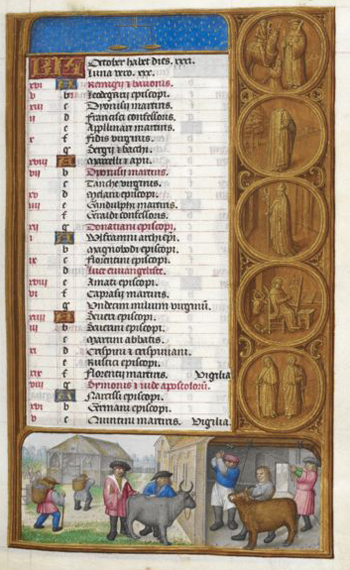 October habet dies. xxxi.
Luna vero. xxx.
xvi A Remigii & bavonis.
v b Leodegarii episcopi.
xiii c Dyonisii martiris.
ii d Francisci confessoris.
e Apollinaris martiris.
x f Fidis virginis.
g Sergii & bachi.
xviii A Marcelli & apu.
vii b Dyonisii martiris.
c virginis.
xv d Melani episcopi.
iiii e Gindulphi martiris.
f Geraldi confessoris.
xii g Donatiani episcopi.
i A Wlframni archiepi.
b Magnobodi episcopi.
ix c Florentini episcopi.
d Luce euangeliste.
xvii e Amati episcopi.
vi f Caprasii martiris.
g Undecim milium virginu.
xiiii A Severi episcopi.
iii b Severini episcopi.
c Martini abbatis.
xi d Crispini & crispiniani.
e Rustici episcopi.
xix f Florentii martiris. Vigilia
viii g Symonis & iude apostoloru.
A Narcissi episcopi.
xvi b Germani episcopi.
v c Quintini martiris. Vigilia.